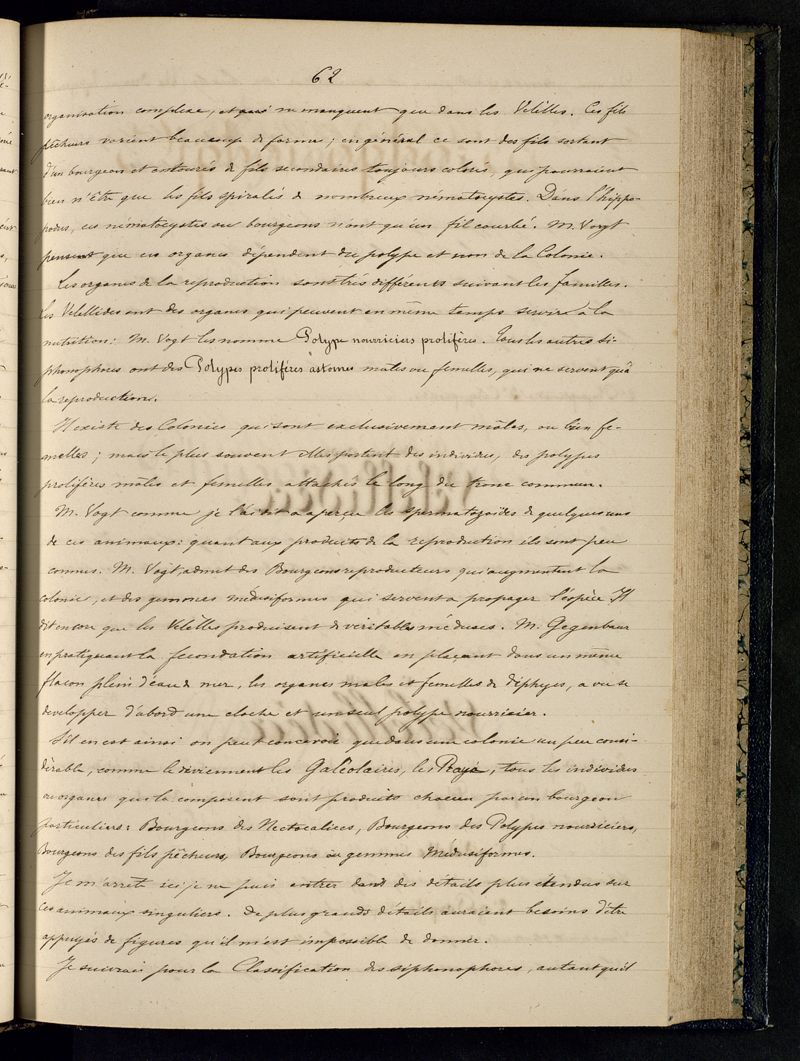 62
organisation complexe, et ne manquent que dans les Velelles. Ces fils
pêcheurs varient beaucoup de forme; en général ce sont des fils sortant
d'un bourgeon et entourés de fils secondaires toujours colorés, qui pourraient
bien n'être que les fils spiralés de nombreux nématocystes. Dans l'hippo-
podus, ces nématocystes ou bourgeons n'ont qu'un fil courbé. M. Vogt
pensent que ces organes dépendent du polype et non de la Colonie.
Les organes de la reproduction sont très différents suivant les familles.
Les Velellides ont des organes qui peuvent en même temps servir à la
nutrition: M. Vogt les nomme Polype nourriciers prolifères. Tous les autres si-
phonophores ont des Polypes prolifères astomes males ou femelles, qui ne servent qu'à
la reproduction.
Il existe des Colonies qui sont exclusivement mâles, ou bien fe-
melles; mais le plus souvent elles portent des individus, des polypes
prolifères males et femelles attachés le long du tronc commun.
M. Vogt comme je l'ai dit a aperçu les spermatozoïdes de quelques uns
de ces animaux: quant aux produits de la reproduction ils sont peu
connus. M. Vogt, admet des Bourgeons reproducteurs qui augmentent la
colonie, et des gemmes médusiformes qui servent a propager l'espèce Il
dit encore que les Velelles produisent de véritables méduses. M. Gegenbaur
en pratiquant la fecondation artificielle en plaçant dans un même
flacon plein d'eau de mer, les organes males et femelles de Diphyes, a vu se
developper d'abord une cloche et un seul polype nourricier.
S'il en est ainsi on peut concevoir que dans une colonie un peu consi-
dérable, comme le deviennent les Galéolaires, les Praya, tous les individus
ou organes qui la composent sont produits chacun par un bourgeon
particulier: Bourgeons des Nectocalices, Bourgeons des Polypes nourriciers,
Bourgeons des fils pêcheurs, Bourgeons ou gemmes Médusiformes.
Je m'arrête ici je ne puis entrer dans des détails plus étendus sur
ces animaux singuliers. De plus grands détails auraient besoins d'être
appuyés de figures qu'il m'est impossible de donner.
Je suivrai pour la Classification des siphonophores, autant qu'il